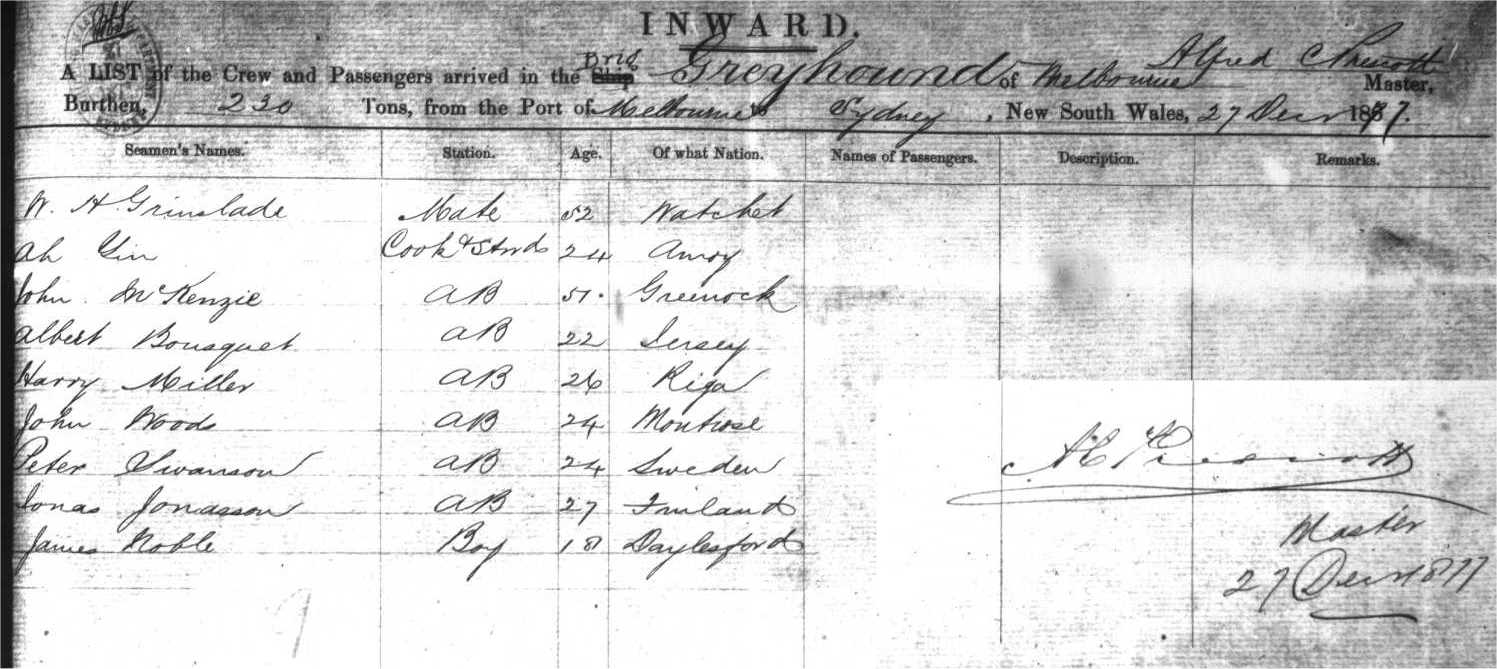 INWARD.
A LIST of the Crew and Passengers arrived in the Ship Brig Greyhound of Melbourne Alfred C Prescott Master,
Burthen, 230 Tons, from the Port of Melbourne to Sydney, New South Wales, 27 Decr 1877.
Seamen's Names. Station. Age. Of what Nation. Names of Passengers. Description. Remarks.
W. H. Grinslade Mate 52 Watchet
Ah Gin Cook & Stwd 24 Amoy
John McKenzie AB 51. Greenock
Albert Bousquet AB 22 Jersey
Harry Miller AB 26 Riga
John Woods AB 24 Montrose
Peter Swanson AB 24 Sweden
Jonas Jonasson AB 27 Finland
James Noble Boy 18 Daylesford
A C Prescott
Master
27 Decr 1877